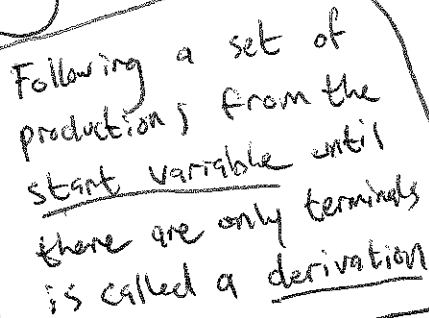 Following a set of
productions from the
start variable until
there are only terminals
is called a derivation